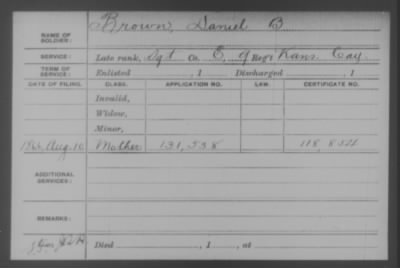 NAME OF SOLDIER: Brown, Daniel B
SERVICE: Late rank, Sgt Co. E, 9 Reg't Kans. Cav.
TERM OF SERVICE: Enlisted , 1 Discharged , 1
DATE OF FILING. CLASS. APPLICATION NO. LAW. CERTIFICATE NO.
Invalid,
Widow,
Minor,
1866, Aug. 10 Mother 131,538 118,854
ADDITIONAL SERVICES:
REMARKS:
Died , 1 , at